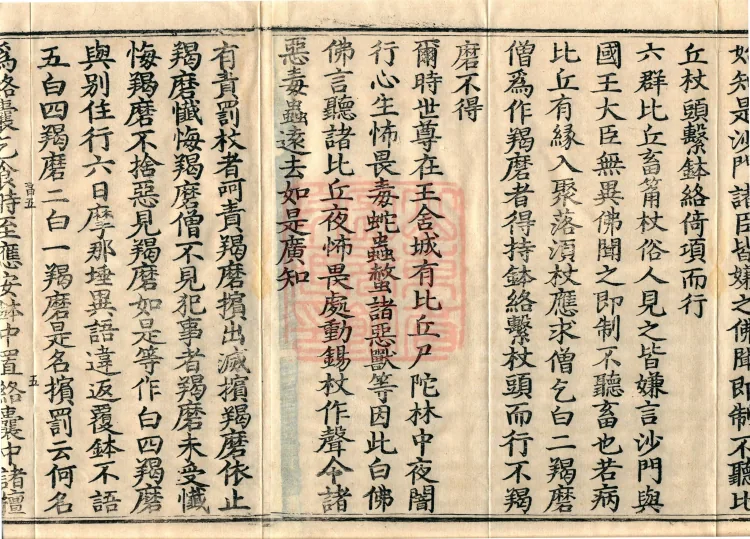 如知是沙門諸臣皆嫌之佛聞即制不聽比
丘杖頭繫鉢絡倚項而行
六群比丘畜筩杖俗人見之皆嫌言沙門與
國王大臣無異佛聞之即制不聽畜也若病
比丘有緣入聚落湏杖應求僧乞白二羯磨
僧爲作羯磨者得持鉢絡繫杖頭而行不羯
磨不得
爾時世尊在王舍城有比丘尸陀林中夜闇
行心生怖畏毒蛇蟲螫諸惡獸等因此白佛
佛言聽諸比丘夜怖畏處動錫杖作聲令諸
惡毒蟲遠去如是廣知
有責罰杖者呵責羯磨擯出滅擯羯磨依止
羯磨懺悔羯磨僧不見犯事者羯磨未受懺
悔羯磨不捨惡見羯磨如是等作白四羯磨
與別住行六日摩那埵異語違返覆鉢不語
五白四羯磨二白一羯磨是名擯罰云何名
爲絡囊乞食時至應安鉢中置絡囊中諸檀